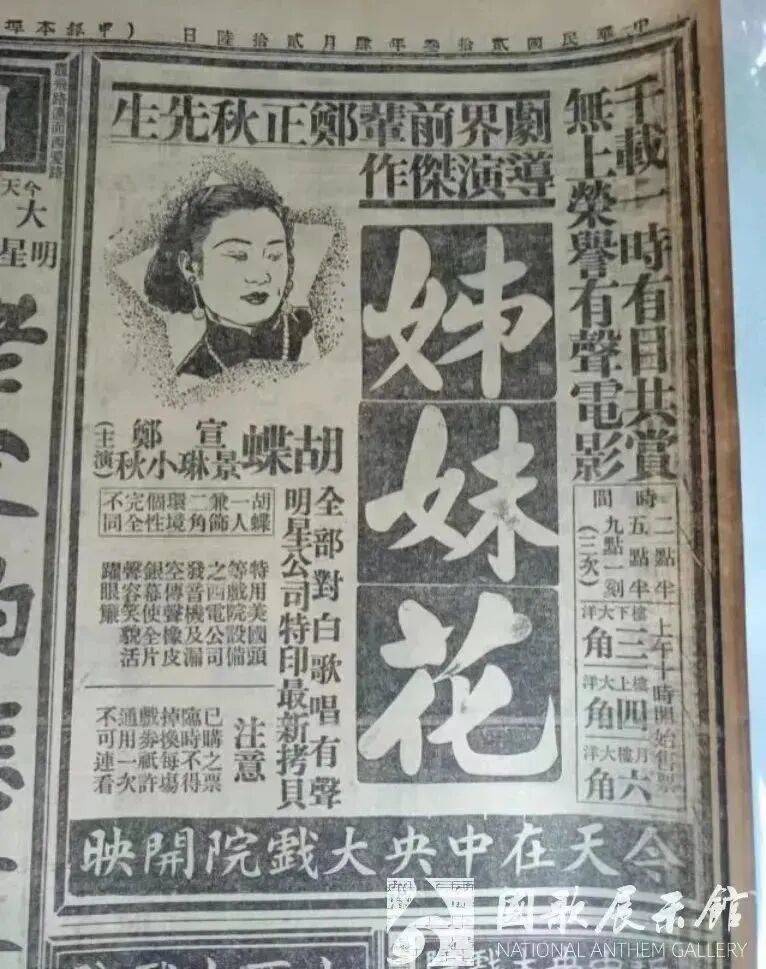 中華民國貳拾叁年肆月貳拾陸日
(申報本埠
千載一時有目共賞
無上榮譽有聲電影
劇界前輩鄭正秋先生
導演傑作
姊妹花
時間
二點半
五點半
九點一刻
(三次)
上午十時開始售票
樓下大洋三角
樓上大洋四角
月樓大洋六角
胡蝶
宣景琳
鄭小秋
(主演)
全部對白歌唱有聲
明星公司特印最新拷貝
胡蝶
一人
兼飾
二角
環境
個性
完全
不同
特用美國頭
等戲院設備
之西電公司
發音機及漏
空傳聲橡皮
銀幕使全片
聲容笑貌活
躍眼簾
注意
已購之票
臨時不得
掉換每場
戲券祇許
通用一次
不可連看
今天在中央大戲院開映
今天
大
明星
國歌展示館
NATIONAL ANTHEM GALLERY